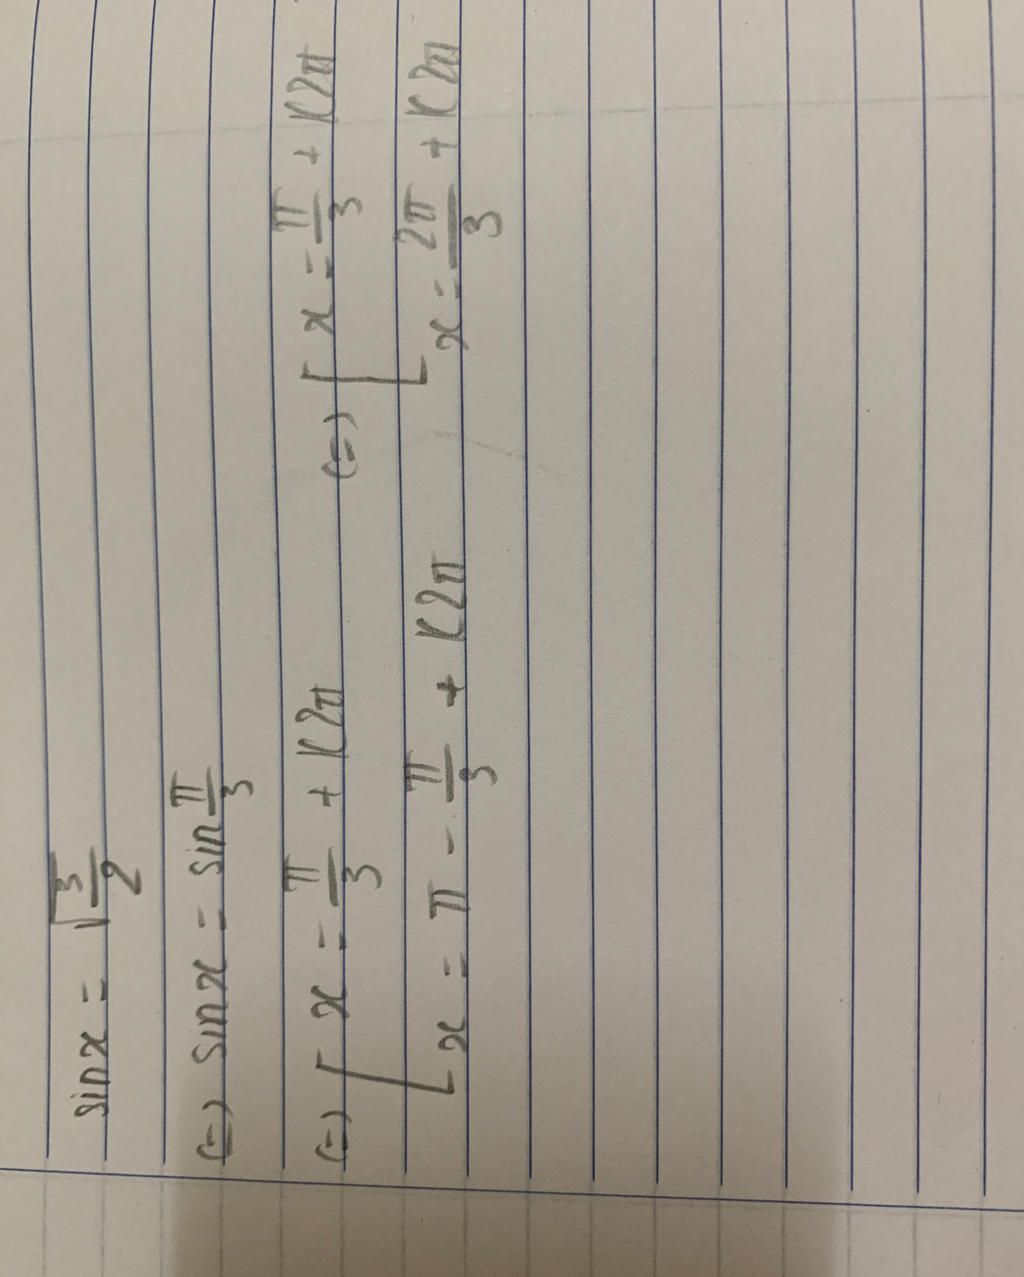 sinx = √3/2
(=) sinx = sin π/3
(=) [ x = π/3 + K2π (=) [ x = π/3 + K2π
x = π - π/3 + K2π x = 2π/3 + K2π